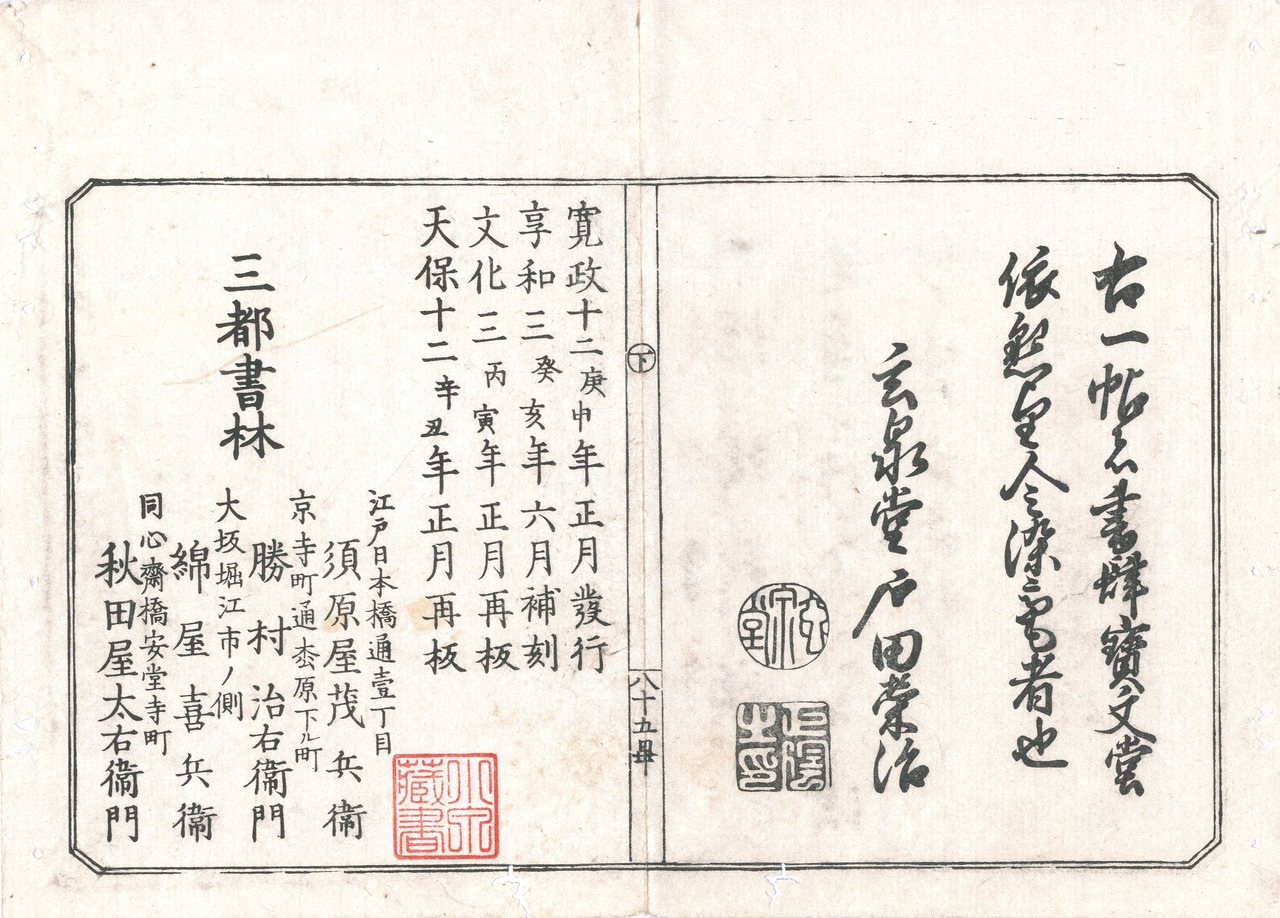 右一帖者書肆寶文堂
依懇望令染毫者也
玄泉堂戸田榮治
下
八十五畢
寛政十二庚申年正月發行
享和三癸亥年六月補刻
文化三丙寅年正月再板
天保十二辛丑年正月再板
三都書林
江戸日本橋通壹丁目
須原屋茂兵衞
京寺町通枩原下ル町
勝村治右衞門
大坂堀江市ノ側
綿屋喜兵衞
同心齋橋安堂寺町
秋田屋太右衞門
藏書